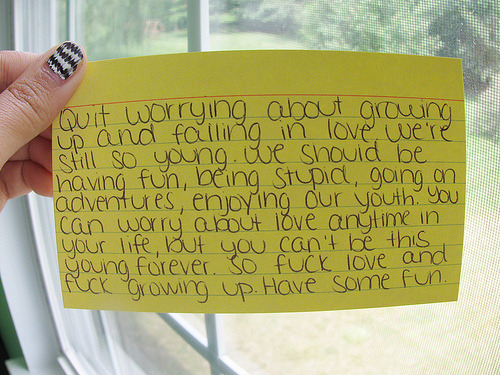 Quit worrying about growing
up and falling in love. We're
still so young. We should be
having fun, being stupid, going on
adventures, enjoying our youth. You
can worry about love anytime in
your life, but you can't be this
young forever. So fuck love and
fuck growing up. Have some fun.